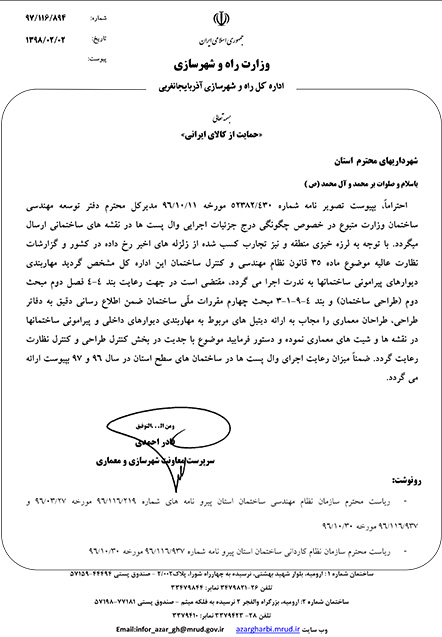 شماره: ۹۷/۱۱۶/۸۹۴
تاریخ: ۱۳۹۸/۰۲/۰۲
پیوست:
جمهوری اسلامی ایران
وزارت راه و شهرسازی
اداره کل راه و شهرسازی آذربایجانغربی
بسمه تعالی
«حمایت از کالای ایرانی»
شهرداریهای محترم استان
باسلام و صلوات بر محمد و آل محمد (ص)
احتراماً، بپیوست تصویر نامه شماره ۵۲۳۸۲/۴۳۰ مورخه ۹۶/۱۰/۱۱ مدیرکل محترم دفتر توسعه مهندسی
ساختمان وزارت متبوع در خصوص چگونگی درج جزئیات اجرایی وال پست ها در نقشه های ساختمانی ارسال
میگردد. با توجه به لرزه خیزی منطقه و نیز تجارب کسب شده از زلزله های اخیر رخ داده در کشور و گزارشات
نظارت عالیه موضوع ماده ۳۵ قانون نظام مهندسی و کنترل ساختمان این اداره کل مشخص گردید مهاربندی
دیوارهای پیرامونی ساختمانها به ندرت اجرا می گردد، مقتضی است در جهت رعایت بند ۴-۴ فصل دوم مبحث
دوم (طراحی ساختمان) و بند ۴-۹-۱-۳ مبحث چهارم مقررات ملّی ساختمان ضمن اطلاع رسانی دقیق به دفاتر
طراحی، طراحان معماری را مجاب به ارائه دیتیل های مربوط به مهاربندی دیوارهای داخلی و پیرامونی ساختمانها
در نقشه ها و شیت های معماری نموده و دستور فرمایید موضوع با جدیت در بخش کنترل طراحی و کنترل نظارت
رعایت گردد. ضمناً میزان رعایت اجرای وال پست ها در ساختمان های سطح استان در سال ۹۶ و ۹۷ بپیوست ارائه
می گردد.
ومن ا... التوفیق
نادر احمدی
سرپرست معاونت شهرسازی و معماری
رونوشت:
- ریاست محترم سازمان نظام مهندسی ساختمان استان پیرو نامه های شماره ۹۶/۱۱۶/۲۱۹ مورخه ۹۶/۰۳/۲۷ و
۹۶/۱۱۶/۹۳۷ مورخه ۹۶/۱۰/۳۰
- ریاست محترم سازمان نظام کاردانی ساختمان استان پیرو نامه شماره ۹۶/۱۱۶/۹۳۷ مورخه ۹۶/۱۰/۳۰
ساختمان شماره ۱: ارومیه، بلوار شهید بهشتی، نرسیده به چهارراه شورا، پلاک ۲/۰۰۲ - صندوق پستی ۴۴۴۹۴-۵۷۱۵۹
تلفن ۲۶-۳۳۴۷۹۸۲۱ نمابر: ۳۳۴۷۹۸۴۴
ساختمان شماره ۲: ارومیه، بزرگراه والفجر ۲ نرسیده به فلکه میثم - صندوق پستی ۷۷۱۸۱-۵۷۱۹۸
تلفن: ۲۸-۳۳۷۹۴۲۳ نمابر: ۳۳۷۹۴۱۰
وب سایت azargharbi.mrud.ir Email:infor_azar_gh@mrud.gov.ir